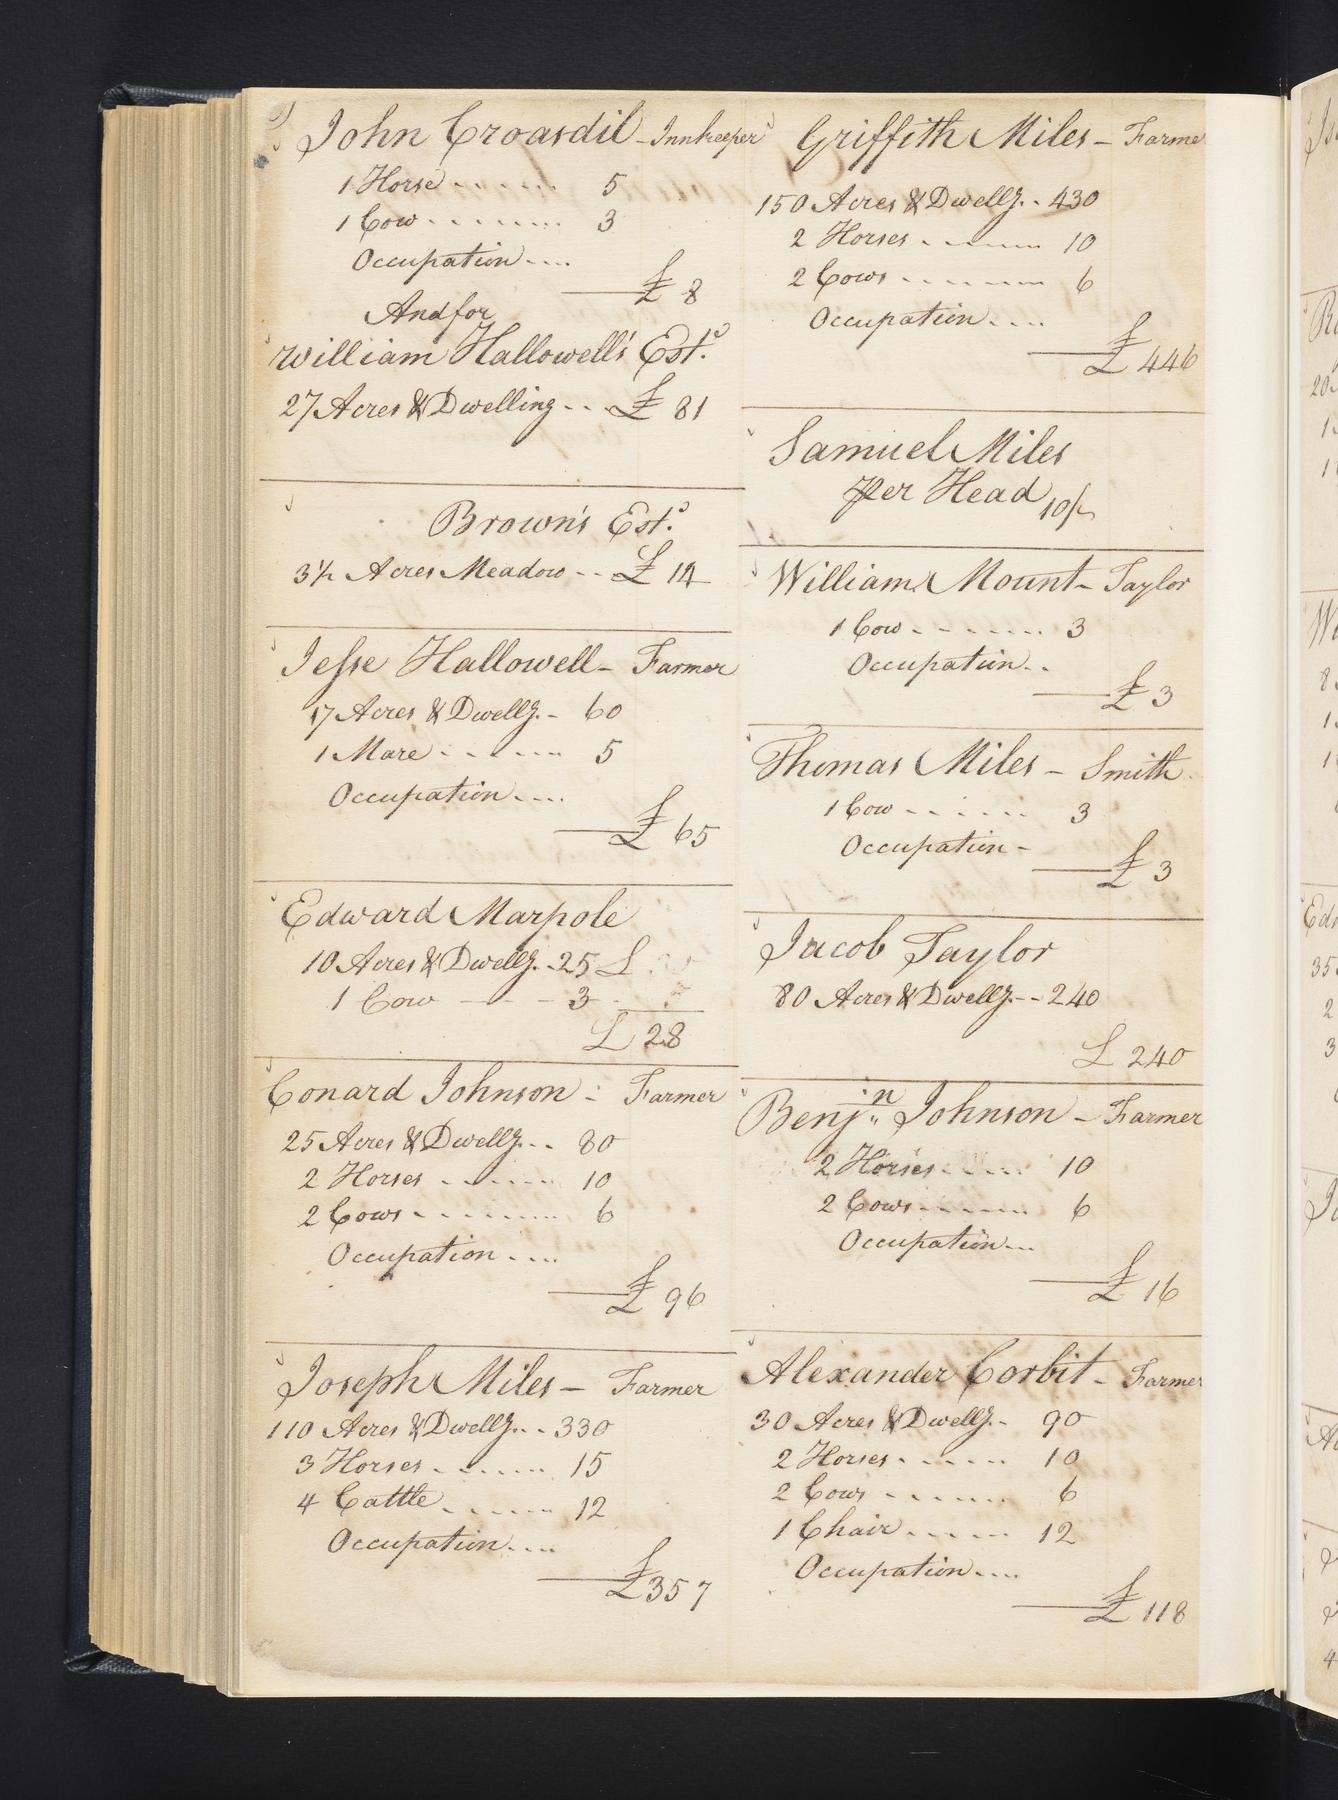 John Croasdil - Innkeeper
1 Horse ...... 5
1 Cow ....... 3
Occupation ....
£ 8
And for
William Hallowell's Est.
27 Acres & Dwelling - - £ 81
Brown's Est.
3½ Acres Meadow - - £ 14
Jesse Hallowell - Farmer
17 Acres & Dwellg. - 60
1 Mare ...... 5
Occupation ....
£ 65
Edward Marpole
10 Acres & Dwellg. - 25 £
1 Cow - - - 3
£ 28
Conard Johnson - Farmer
25 Acres & Dwellg. .. 80
2 Horses ....... 10
2 Cows ........ 6
Occupation ....
£ 96
Joseph Miles - Farmer
110 Acres & Dwellg. .. 330
3 Horses ....... 15
4 Cattle ....... 12
Occupation ....
£ 357
Griffith Miles - Farme
150 Acres & Dwellg. . 430
2 Horses ....... 10
2 Cows ........ 6
Occupation ....
£ 446
Samuel Miles
Per Head 10/
William Mount - Taylor
1 Cow ....... 3
Occupation ..
£ 3
Thomas Miles - Smith
1 Cow ...... 3
Occupation -
£ 3
Jacob Taylor
80 Acres & Dwellg. - - 240
£ 240
Benjn. Johnson - Farmer
2 Horses ..... 10
2 Cows ...... 6
Occupation ...
£ 16
Alexander Corbit - Farmer
30 Acres & Dwellg. - 90
2 Horses ...... 10
2 Cows ...... 6
1 Chair ..... 12
Occupation ....
£ 118